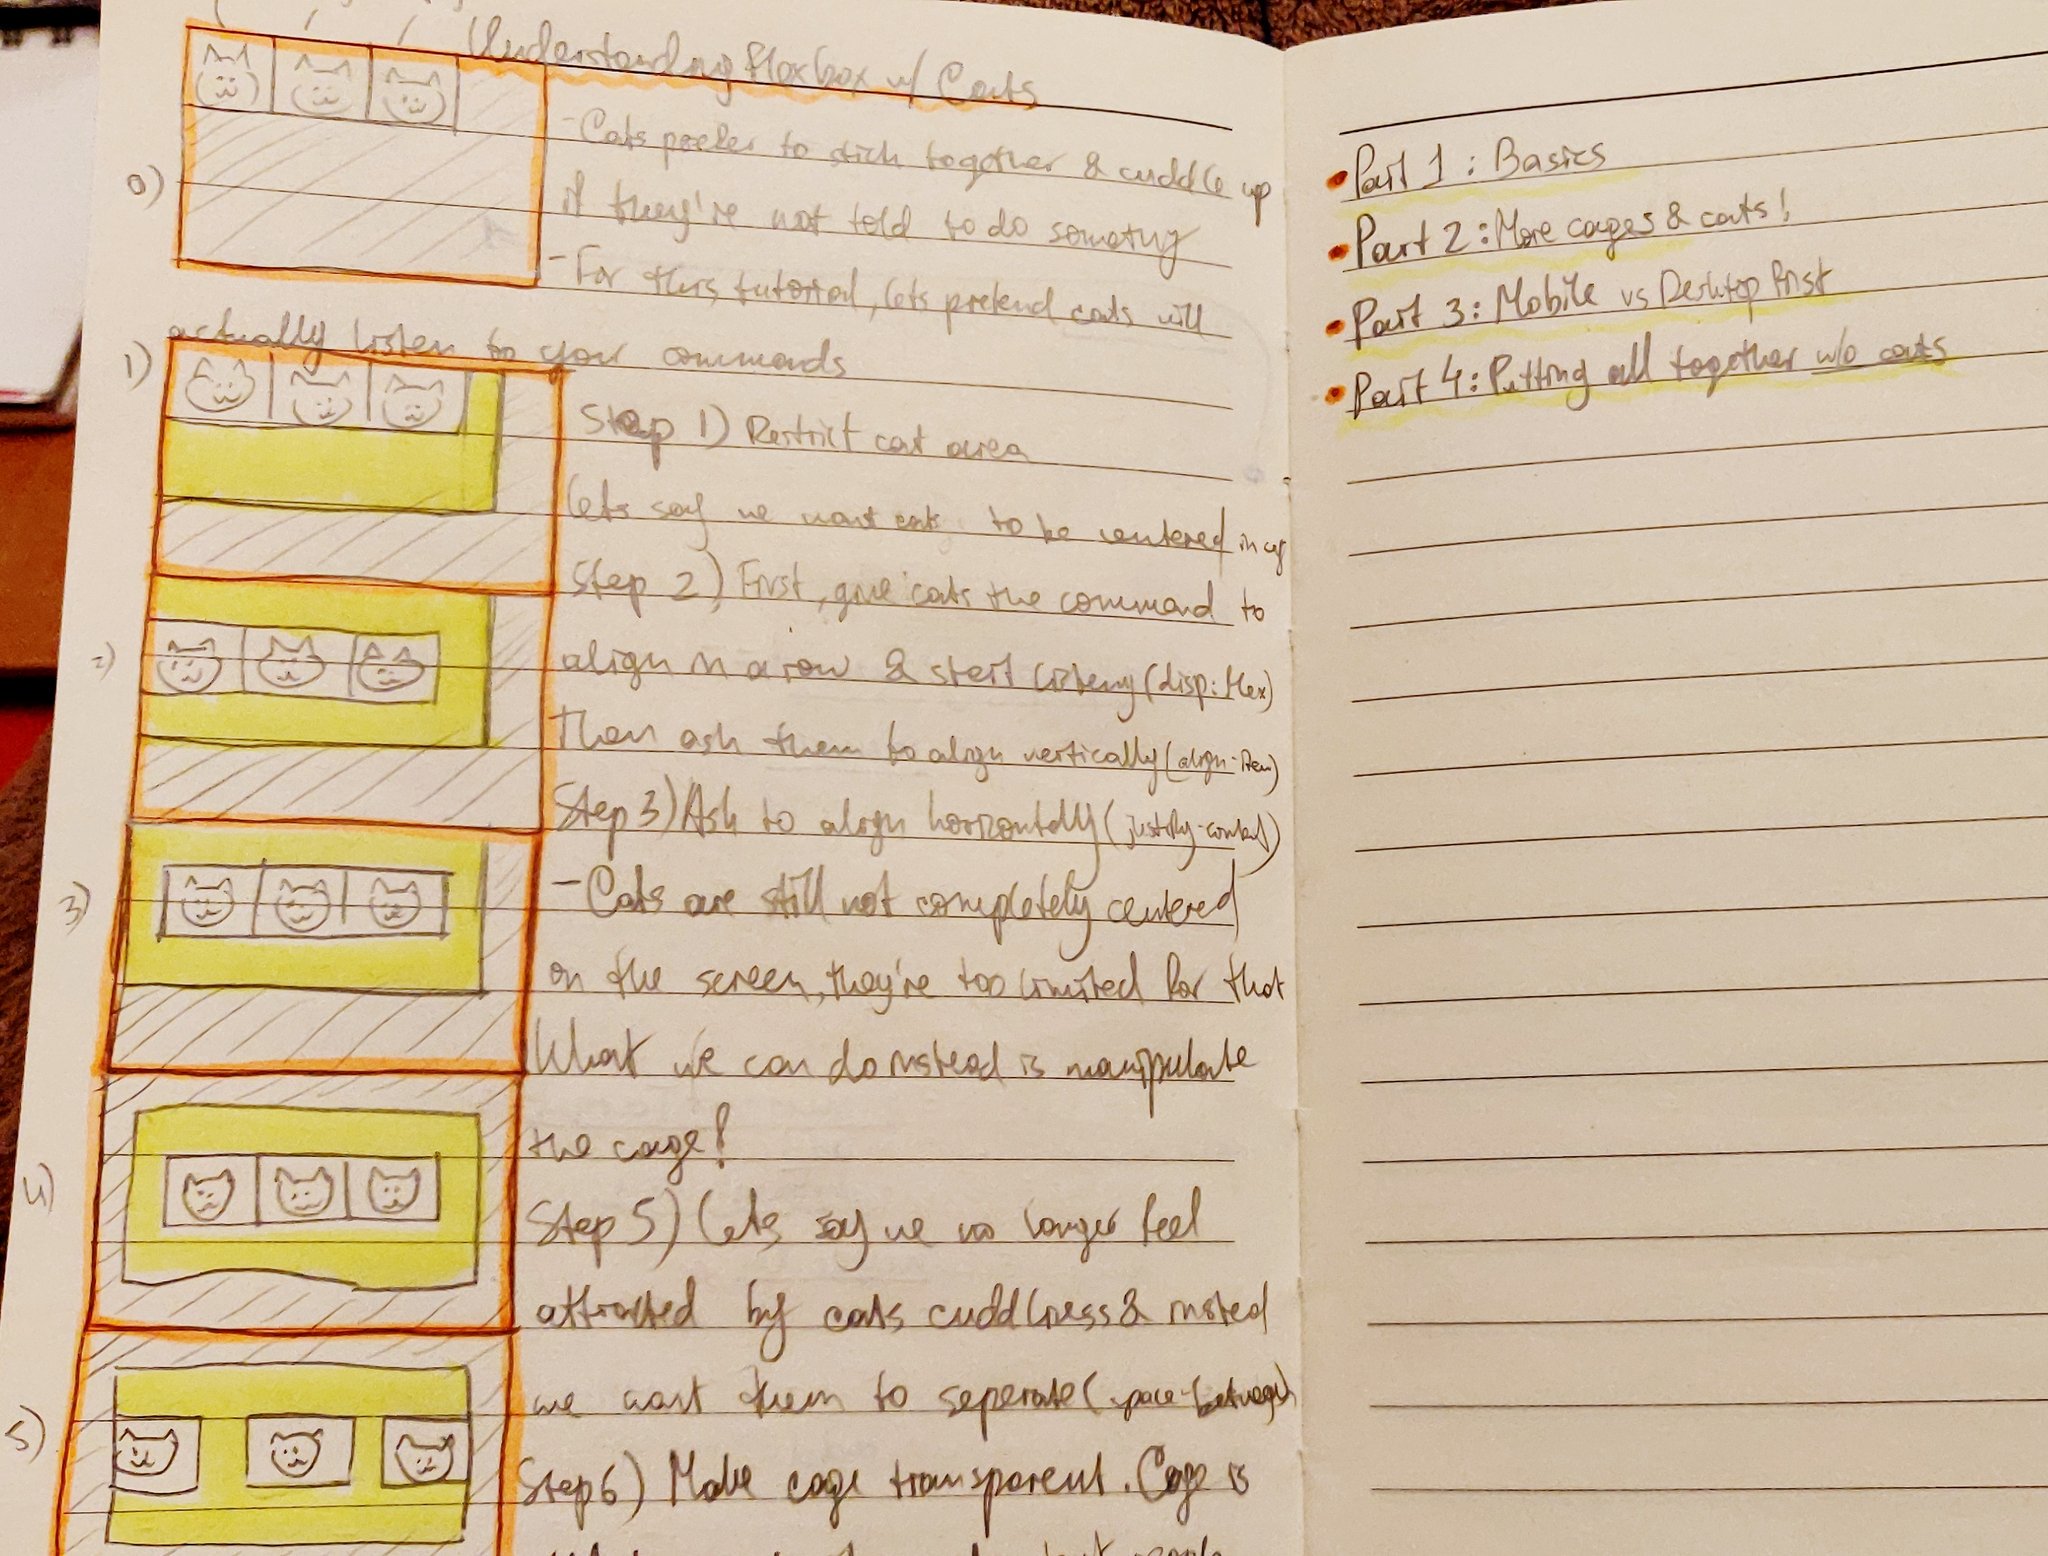 Understanding Flexbox w/ Cats
0)
- Cats prefer to stick together & cuddle up
if they're not told to do somethng
- For this tutorial, lets pretend cats will
actually listen to your commands
1)
Step 1) Restrict cat area
Lets say we want cats to be centered in
2)
Step 2) First, give cats the command to
align in a row & start listening (disp: flex)
Then ask them to align vertically (align-item)
3)
Step 3) Ask to align horizontally (justify-content)
- Cats are still not completely centered
on the screen, they're too limited for that
What we can do instead is manipulate
the cage!
4)
Step 5) Lets say we no longer feel
attracted by cats cuddliness & insted
we want them to seperate (space-between)
5)
Step 6) Make cage transparent. Cage is
people
• Part 1: Basics
• Part 2: More cages & cats!
• Part 3: Mobile vs Desktop first
• Part 4: Putting all together w/o cats